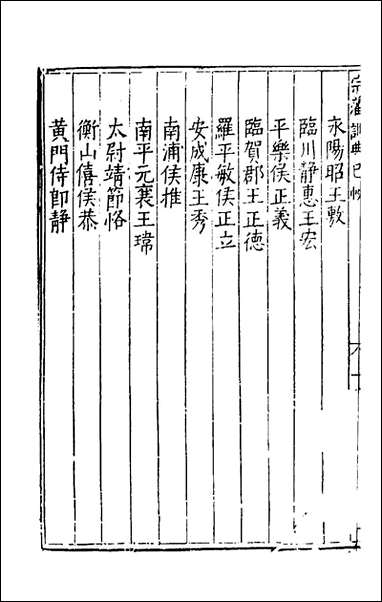 宗藩訓典巳帙
永陽昭王敷
臨川靜惠王宏
平樂侯正義
臨賀郡王正德
羅平敏侯正立
安成康王秀
南浦侯推
南平元襄王瑋
太尉靖節恪
衡山僖侯恭
黃門侍郎靜